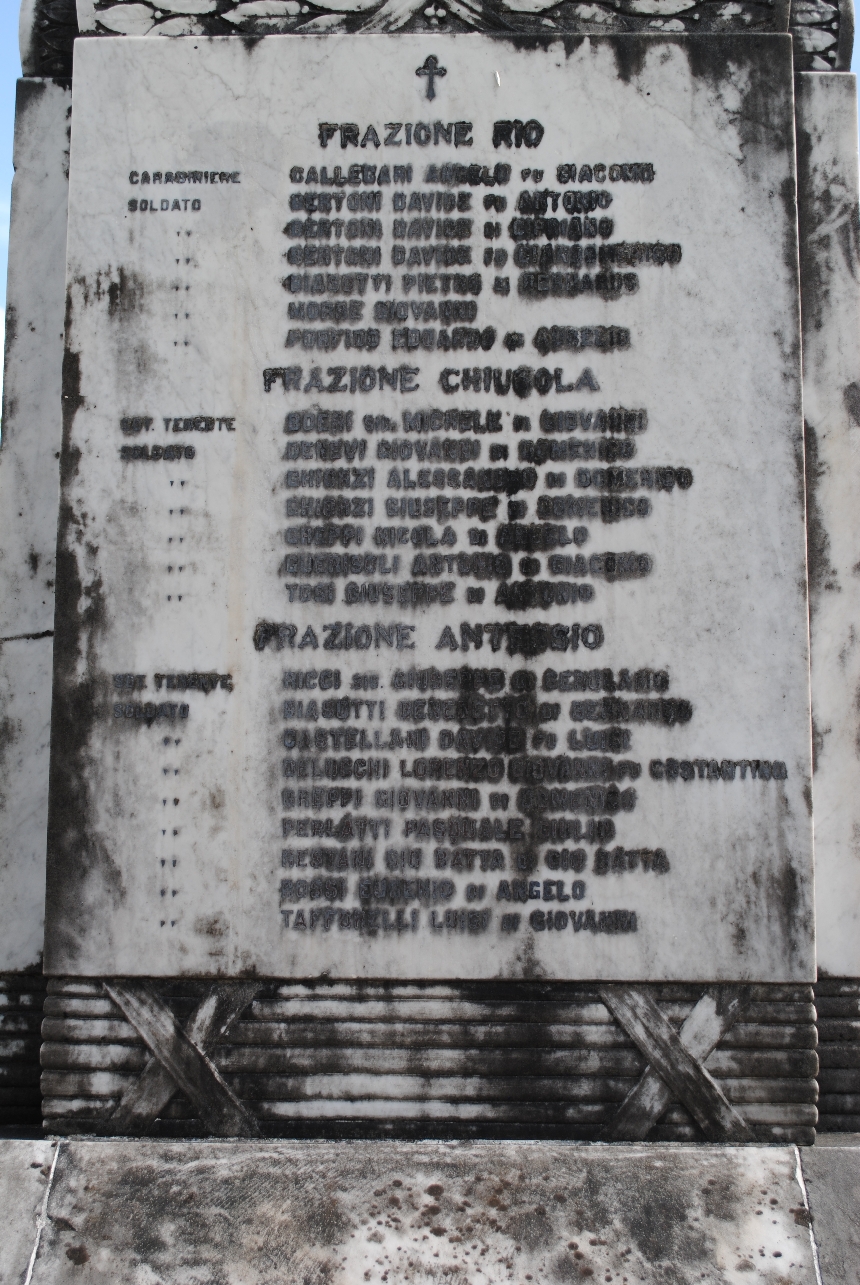 FRAZIONE RIO
CARABINIERE CALLEGARI ANGELO FU GIACOMO
SOLDATO BERTONI DAVIDE FU ANTONIO
" BERTONI DAVIDE DI CIPRIANO
" BERTONI DAVIDE FU
" BIASOTTI PIETRO DI BERNARDO
" MORRE GIOVANNI
" EDUARDO DI
FRAZIONE CHIUSOLA
SOT. TENENTE MICHELE DI GIOVANNI
SOLDATO GIOVANNI DI DOMENICO
" GHIGAZI ALESSANDRO DI DOMENICO
" GHIGAZI GIUSEPPE DI DOMENICO
" GREPPI NICOLA DI ANGELO
" ANTONIO DI GIACOMO
" TOSI GIUSEPPE DI ANTONIO
FRAZIONE ANTESSIO
SOT. TENENTE RICCI GIUSEPPE DI
SOLDATO BIASOTTI BENEDETTO DI BERNARDO
" CASTELLANI DAVIDE FU LUIGI
" DELUCCHI LORENZO GIOVANNI FU COSTANTINO
" GREPPI GIOVANNI DI DOMENICO
" PERLATTI PASQUALE GIULIO
" RESTANI GIO BATTA DI GIO BATTA
" ROSSI EUGENIO DI ANGELO
" LUIGI DI GIOVANNI